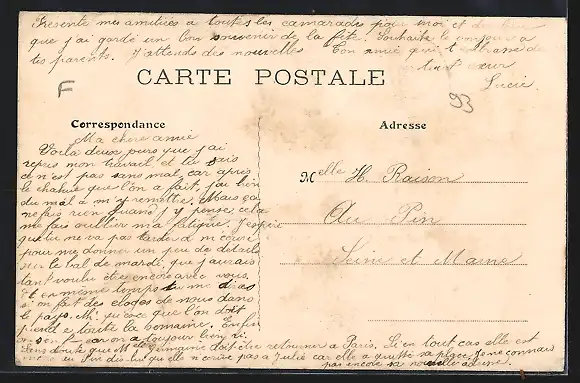 Presente mes amitiées a toutes les camarades pour moi et
que j'ai gardé un bon souvenir de la fête. Souhaite le bonjour a
tes parents. J'attends des nouvelles Ton amie qui t'embrasse de
tout cœur
Lucie
CARTE POSTALE
F
93
Correspondance
Adresse
Ma chere amie
Voila deux jours que j'ai
repris mon travail et tu sais
ce n'est pas sans mal, car après
le chahut que l'on a fait, j'ai bien
du mal a m'y remettre. Mais ça
ne fais rien quand j'y pense cela
me fais oublier ma fatigue. J'espère
que tu ne va pas tarder a m'ecrire
pour me donner un peu de détails
sur le bal de mardi, que j'aurais
tant voulu être encore avec vous.
Et en même temps tu me diras
si on fait des eloges de nous dans
le pays. M' que l'on doit
toute la semaine. Enfin
on s'en car on a toujour bien ri.
Sans doute que Melle Germaine doit être retourner a Paris. Si en tout cas elle est
au Pin dis-lui qu'elle n'écrive pas a Julie car elle a quitté sa place. Je ne connais
pas encore sa nouvelle adresse.
Melle H. Raison
Au Pin
Seine et Marne